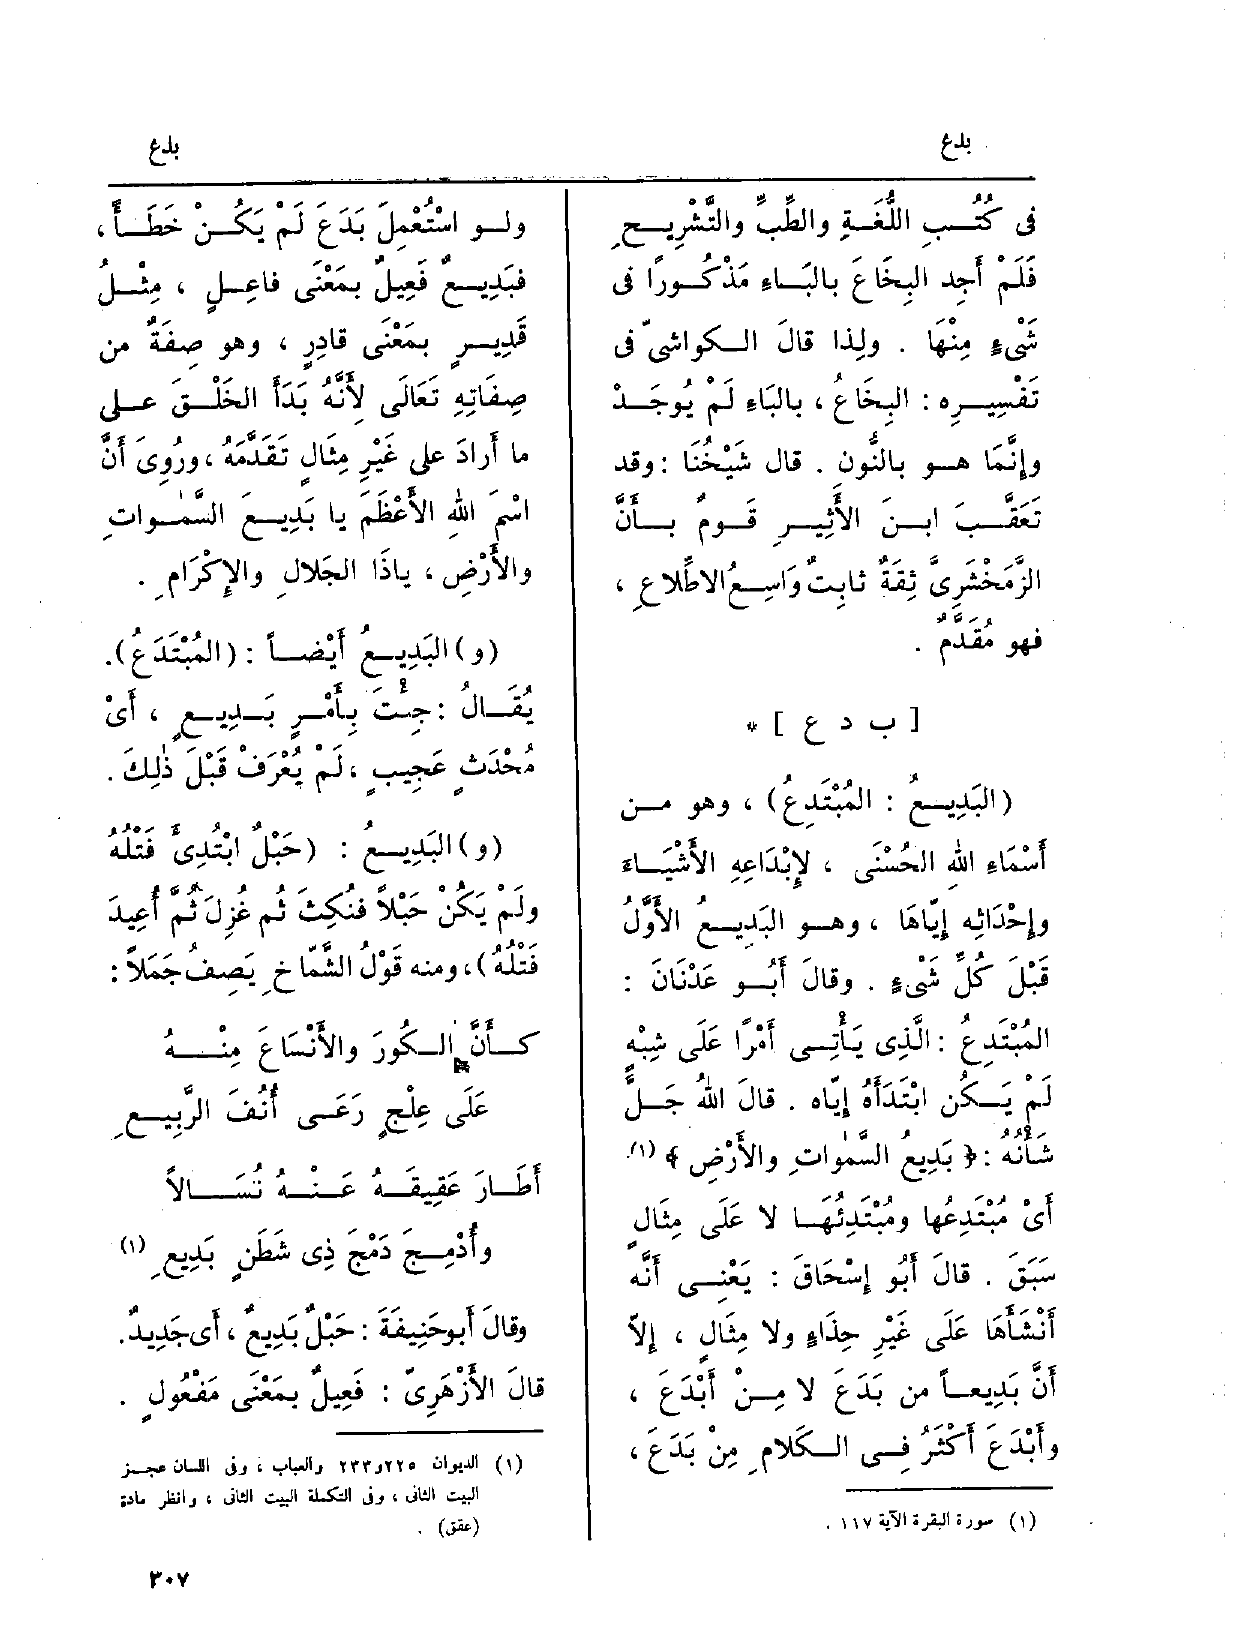 بدع
بدع
فى كُتُبِ اللُّغَةِ والطِّبِّ والتَّشْرِيحِ
فَلَمْ أَجِد البِخَاعَ بالبَاءِ مَذْكُورًا فى
شَىْءٍ مِنْهَا . ولِذا قالَ الكواشىّ فى
تَفْسِيرِه : البِخَاعُ ، بالبَاءِ لَمْ يُوجَدْ
وإِنَّمَا هو بالنُّون . قال شَيْخُنَا : وقد
تَعَقَّبَ ابنَ الأَثِيرِ قَومٌ بأَنَّ
الزَّمَخْشَرِىَّ ثِقَةٌ ثابِتٌ وَاسِعُ الاطِّلاعِ ،
فهو مُقَدَّمٌ .
[ ب د ع ] *
(البَدِيعُ : المُبْتَدِعُ) ، وهو من
أَسْمَاءِ اللهِ الحُسْنَى ، لإِبْدَاعِهِ الأَشْيَاءَ
وإِحْدَاثِه إِيّاهَا ، وهو البَدِيعُ الأَوَّلُ
قَبْلَ كُلِّ شَىْءٍ . وقالَ أَبُو عَدْنَانَ :
المُبْتَدِعُ : الَّذِى يَأْتِى أَمْرًا عَلَى شِبْهٍ
لَمْ يَكُن ابْتَدَأَهُ إِيّاه . قالَ اللهُ جَلَّ
شَأْنُهُ : ﴿ بَدِيعُ السَّمٰوَاتِ والأَرْضِ ﴾ (١).
أَىْ مُبْتَدِعُها ومُبْتَدِئُهَا لا عَلَى مِثَالٍ
سَبَقَ . قالَ أَبُو إِسْحَاقَ : يَعْنِى أَنَّه
أَنْشَأَهَا عَلَى غَيْرِ حِذَاءٍ ولا مِثَالٍ ، إِلاّ
أَنَّ بَدِيعاً من بَدَعَ لا مِنْ أَبْدَعَ ،
وأَبْدَعَ أَكْثَرُ فِى الكَلامِ مِنْ بَدَعَ ،
(١) سورة البقرة الآية ١١٧ .
ولو اسْتُعْمِلَ بَدَعَ لَمْ يَكُنْ خَطَأً ،
فبَدِيعٌ فَعِيلٌ بمَعْنَى فاعِلٍ ، مِثْلُ
قَدِيرٍ بمَعْنَى قادِرٍ ، وهو صِفَةٌ من
صِفَاتِهِ تَعَالَى لأَنَّهُ بَدَأَ الخَلْقَ على
ما أَرادَ على غَيْرِ مِثَالٍ تَقَدَّمَهُ ، ورُوِىَ أَنَّ
اسْمَ اللهِ الأَعْظَمَ يا بَدِيعَ السَّمٰوَاتِ
والأَرْضِ ، ياذَا الجَلالِ والإِكْرَامِ .
(و) البَدِيعُ أَيْضاً : (المُبْتَدَعُ).
يُقَالُ : جِئْتَ بِأَمْرٍ بَدِيعٍ ، أَىْ
مُحْدَثٍ عَجِيبٍ ، لَمْ يُعْرَفْ قَبْلَ ذٰلِكَ .
(و) البَدِيعُ : (حَبْلٌ ابْتُدِئَ فَتْلُهُ
ولَمْ يَكُنْ حَبْلاً فنُكِثَ ثُم غُزِلَ ثُمَّ أُعِيدَ
فَتْلُهُ) ، ومنه قَوْلُ الشَّمّاخِ يَصِفُ جَمَلاً :
كأَنَّ الكُورَ والأَنْسَاعَ مِنْهُ
عَلَى عِلْجٍ رَعَى أُنُفَ الرَّبِيعِ
أَطَارَ عَقِيقَهُ عَنْهُ نُسَالاً
وأُدْمِجَ دَمْجَ ذِى شَطَنٍ بَدِيعِ (١)
وقالَ أَبو حَنِيفَةَ : حَبْلٌ بَدِيعٌ ، أَى جَدِيدٌ.
قالَ الأَزْهَرِىّ : فَعِيلٌ بمَعْنَى مَفْعُولٍ .
(١) الديوان ٢٢٥ و ٢٣٣ والعباب ، وفى اللسان عجز
البيت الثانى ، وفى التكملة البيت الثانى ، وانظر مادة
(عقق) .
٣٠٧